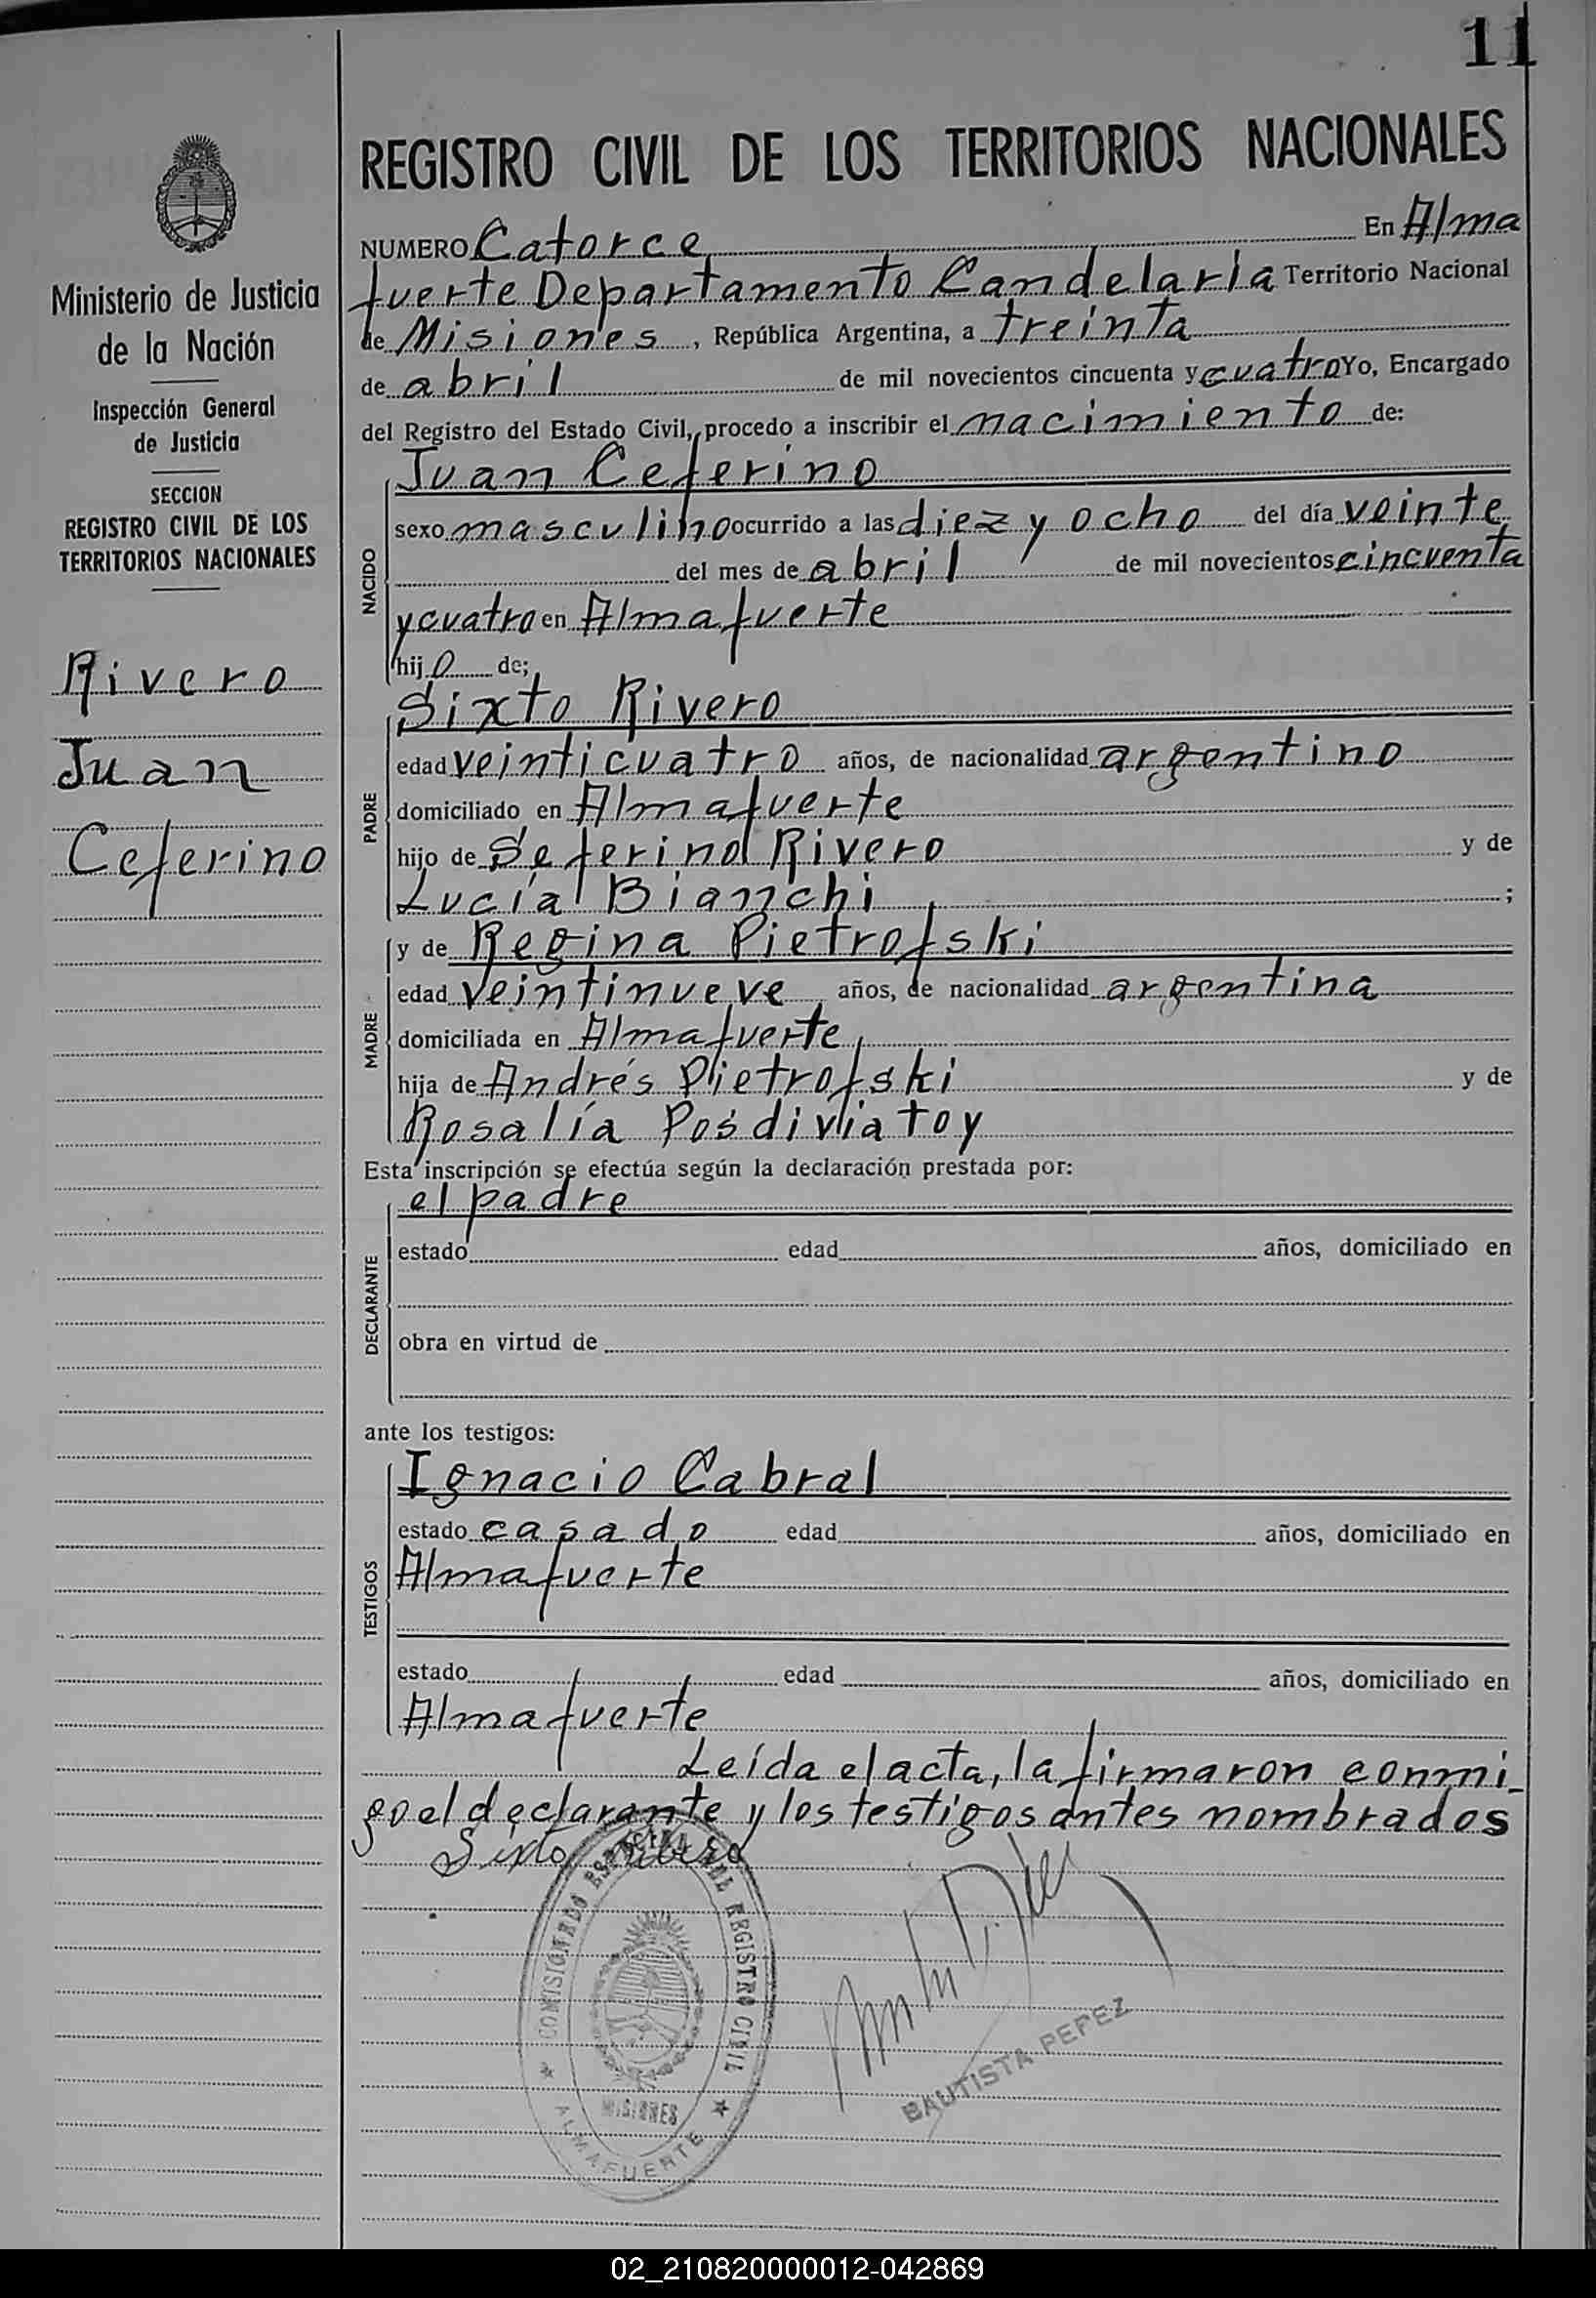 11
REGISTRO CIVIL DE LOS TERRITORIOS NACIONALES
Ministerio de Justicia
de la Nación
Inspección General
de Justicia
SECCION
REGISTRO CIVIL DE LOS
TERRITORIOS NACIONALES
Rivero
Juan
Ceferino
NUMERO Catorce En Alma
fuerte Departamento Candelaria Territorio Nacional
de Misiones, República Argentina, a treinta
de abril de mil novecientos cincuenta y cuatro Yo, Encargado
del Registro del Estado Civil, procedo a inscribir el nacimiento de:
NACIDO
Juan Ceferino
sexo masculino ocurrido a las diez y ocho del día veinte
del mes de abril de mil novecientos cincuenta
y cuatro en Almafuerte
hijo de;
PADRE
Sixto Rivero
edad veinticuatro años, de nacionalidad argentino
domiciliado en Almafuerte
hijo de Seferino Rivero y de
Lucía Bianchi ;
MADRE
y de Regina Pietrofski
edad veintinueve años, de nacionalidad argentina
domiciliada en Almafuerte
hija de Andrés Pietrofski y de
Rosalía Posdiviatoy
Esta inscripción se efectúa según la declaración prestada por:
DECLARANTE
el padre
estado edad años, domiciliado en
obra en virtud de
ante los testigos:
TESTIGOS
Ignacio Cabral
estado casado edad años, domiciliado en
Almafuerte
estado edad años, domiciliado en
Almafuerte
Leída el acta, la firmaron conmi_
go el declarante y los testigos antes nombrados
Sixto Rivero
COMISIONADO DEL REGISTRO CIVIL
MISIONES
ALMAFUERTE
BAUTISTA PEPEZ
02_210820000012-042869